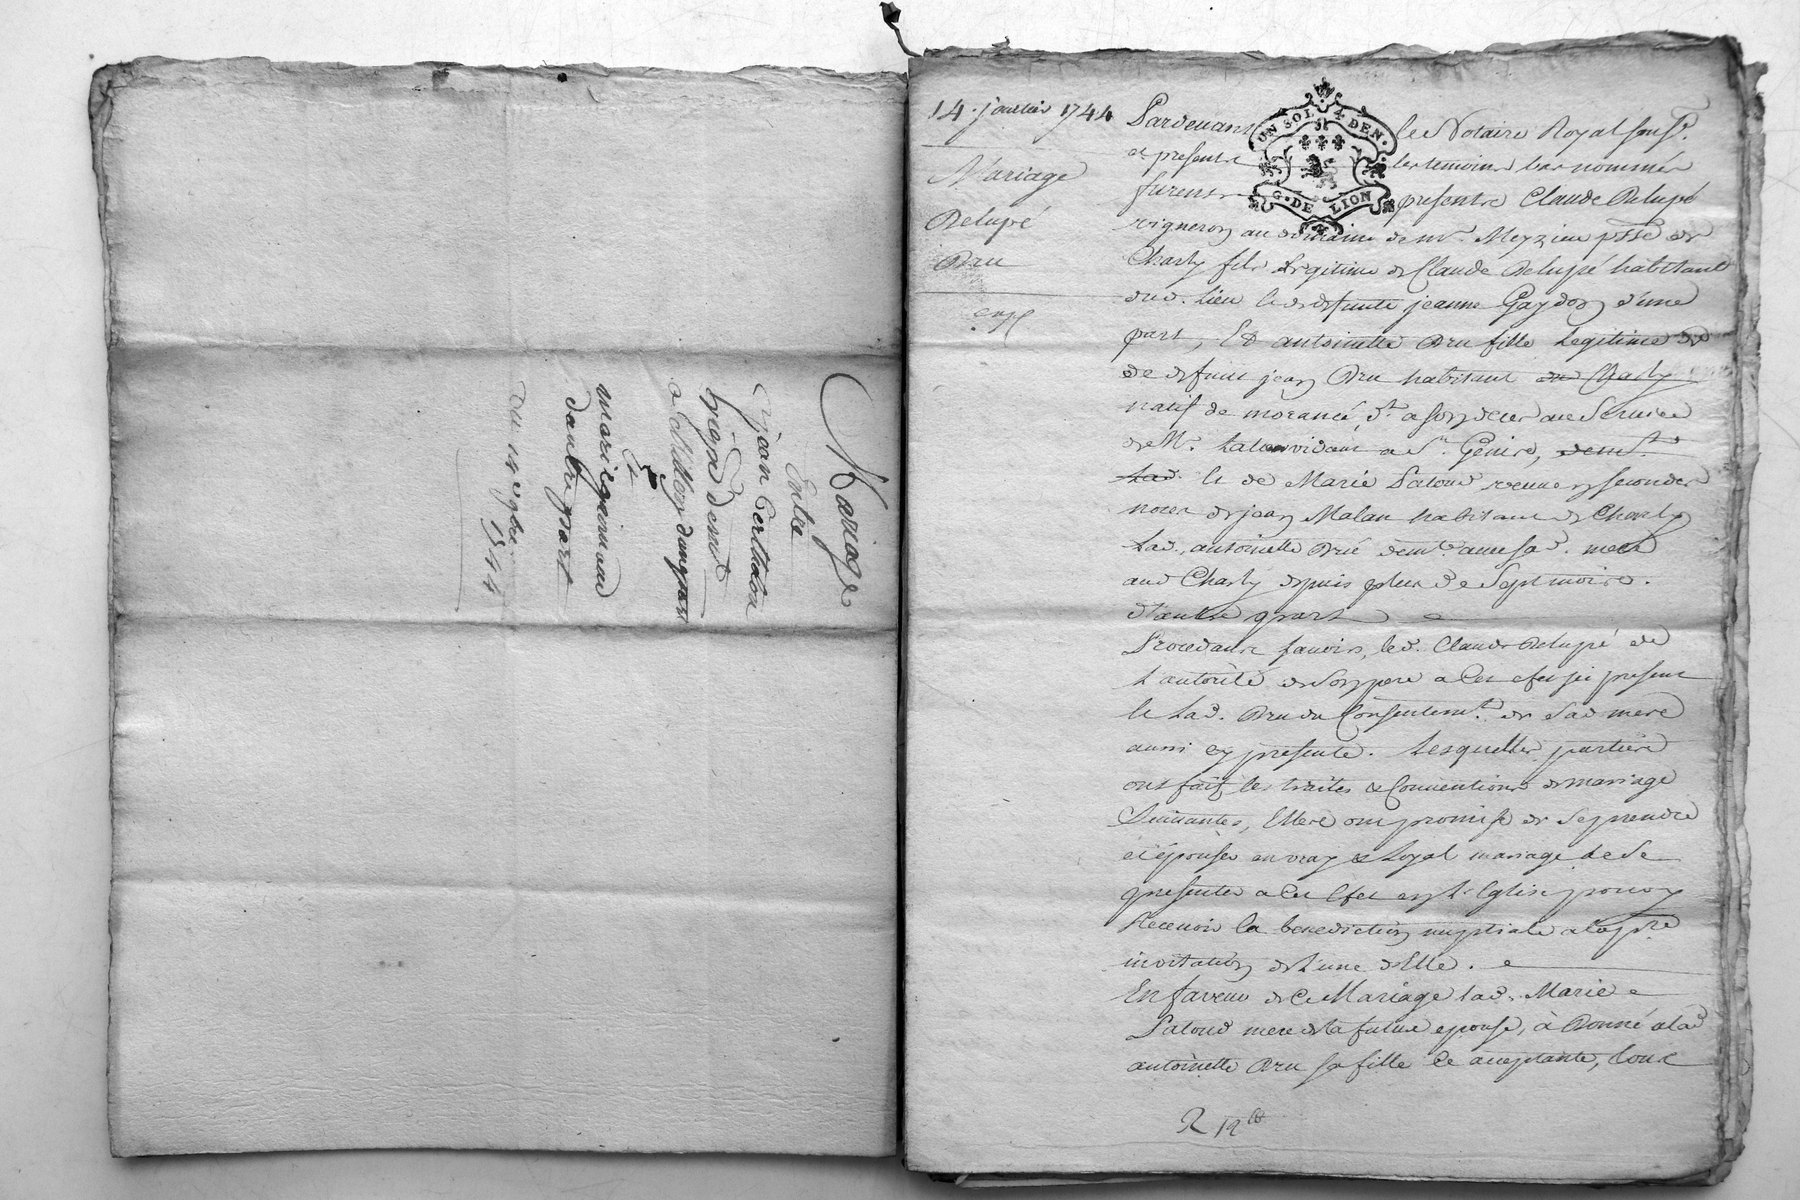 Mariage
Entre
jean
vigneron demt
a Millery d'une part
&
marie
d'autre part
du 14 9bre
1744
14. janvier 1744
Mariage
Delupé
Bru
exp
UN SOL. 4 DEN.
G. DE LION
Pardevant le Notaire Royal souss.
et presents les temoins bas nommés
furent presents Claude Delupé
vigneron au domaine de mr. Meyzieu psse de
Charly fils legitime de Claude Delupé habitant
dud. lieu & de defunte jeanne Gaydon d'une
part, Et antoinette Bru fille legitime de
de defunt jean Bru habitant de Charly
natif de morancé, dt. a son deces au Service
de Mr. a St. Genire, demt.
Lad. & de Marie Latoud veuve en secondes
noces de jean Malan habitant de Charly
Lad. antoinette Brú demte. avec sad. mere
aud Charly depuis plus de Sept mois.
d'autre part
Procedants savoir, led. Claude Delupé de
l'autorité de Son pere a Cet effet ici present
& Lad. Bru du Consentemt. de Sad mere
aussi cy presente. Lesquelles parties
ont fait les traites & Conventions de mariage
Suivantes, Elles ont promis de Se prendre
et épouser en vray & Loyal mariage & de Se
presenter a Cet Effet en St Eglise pour y
Recevoir la benediction nuptiale a la pre
invitation de l'une d'Elle.
En faveur de Ce Mariage lad. Marie
Latoud mere de la future epouse, à Donné a lad
antoinette Bru sa fille Ce acceptante, tous
R 19